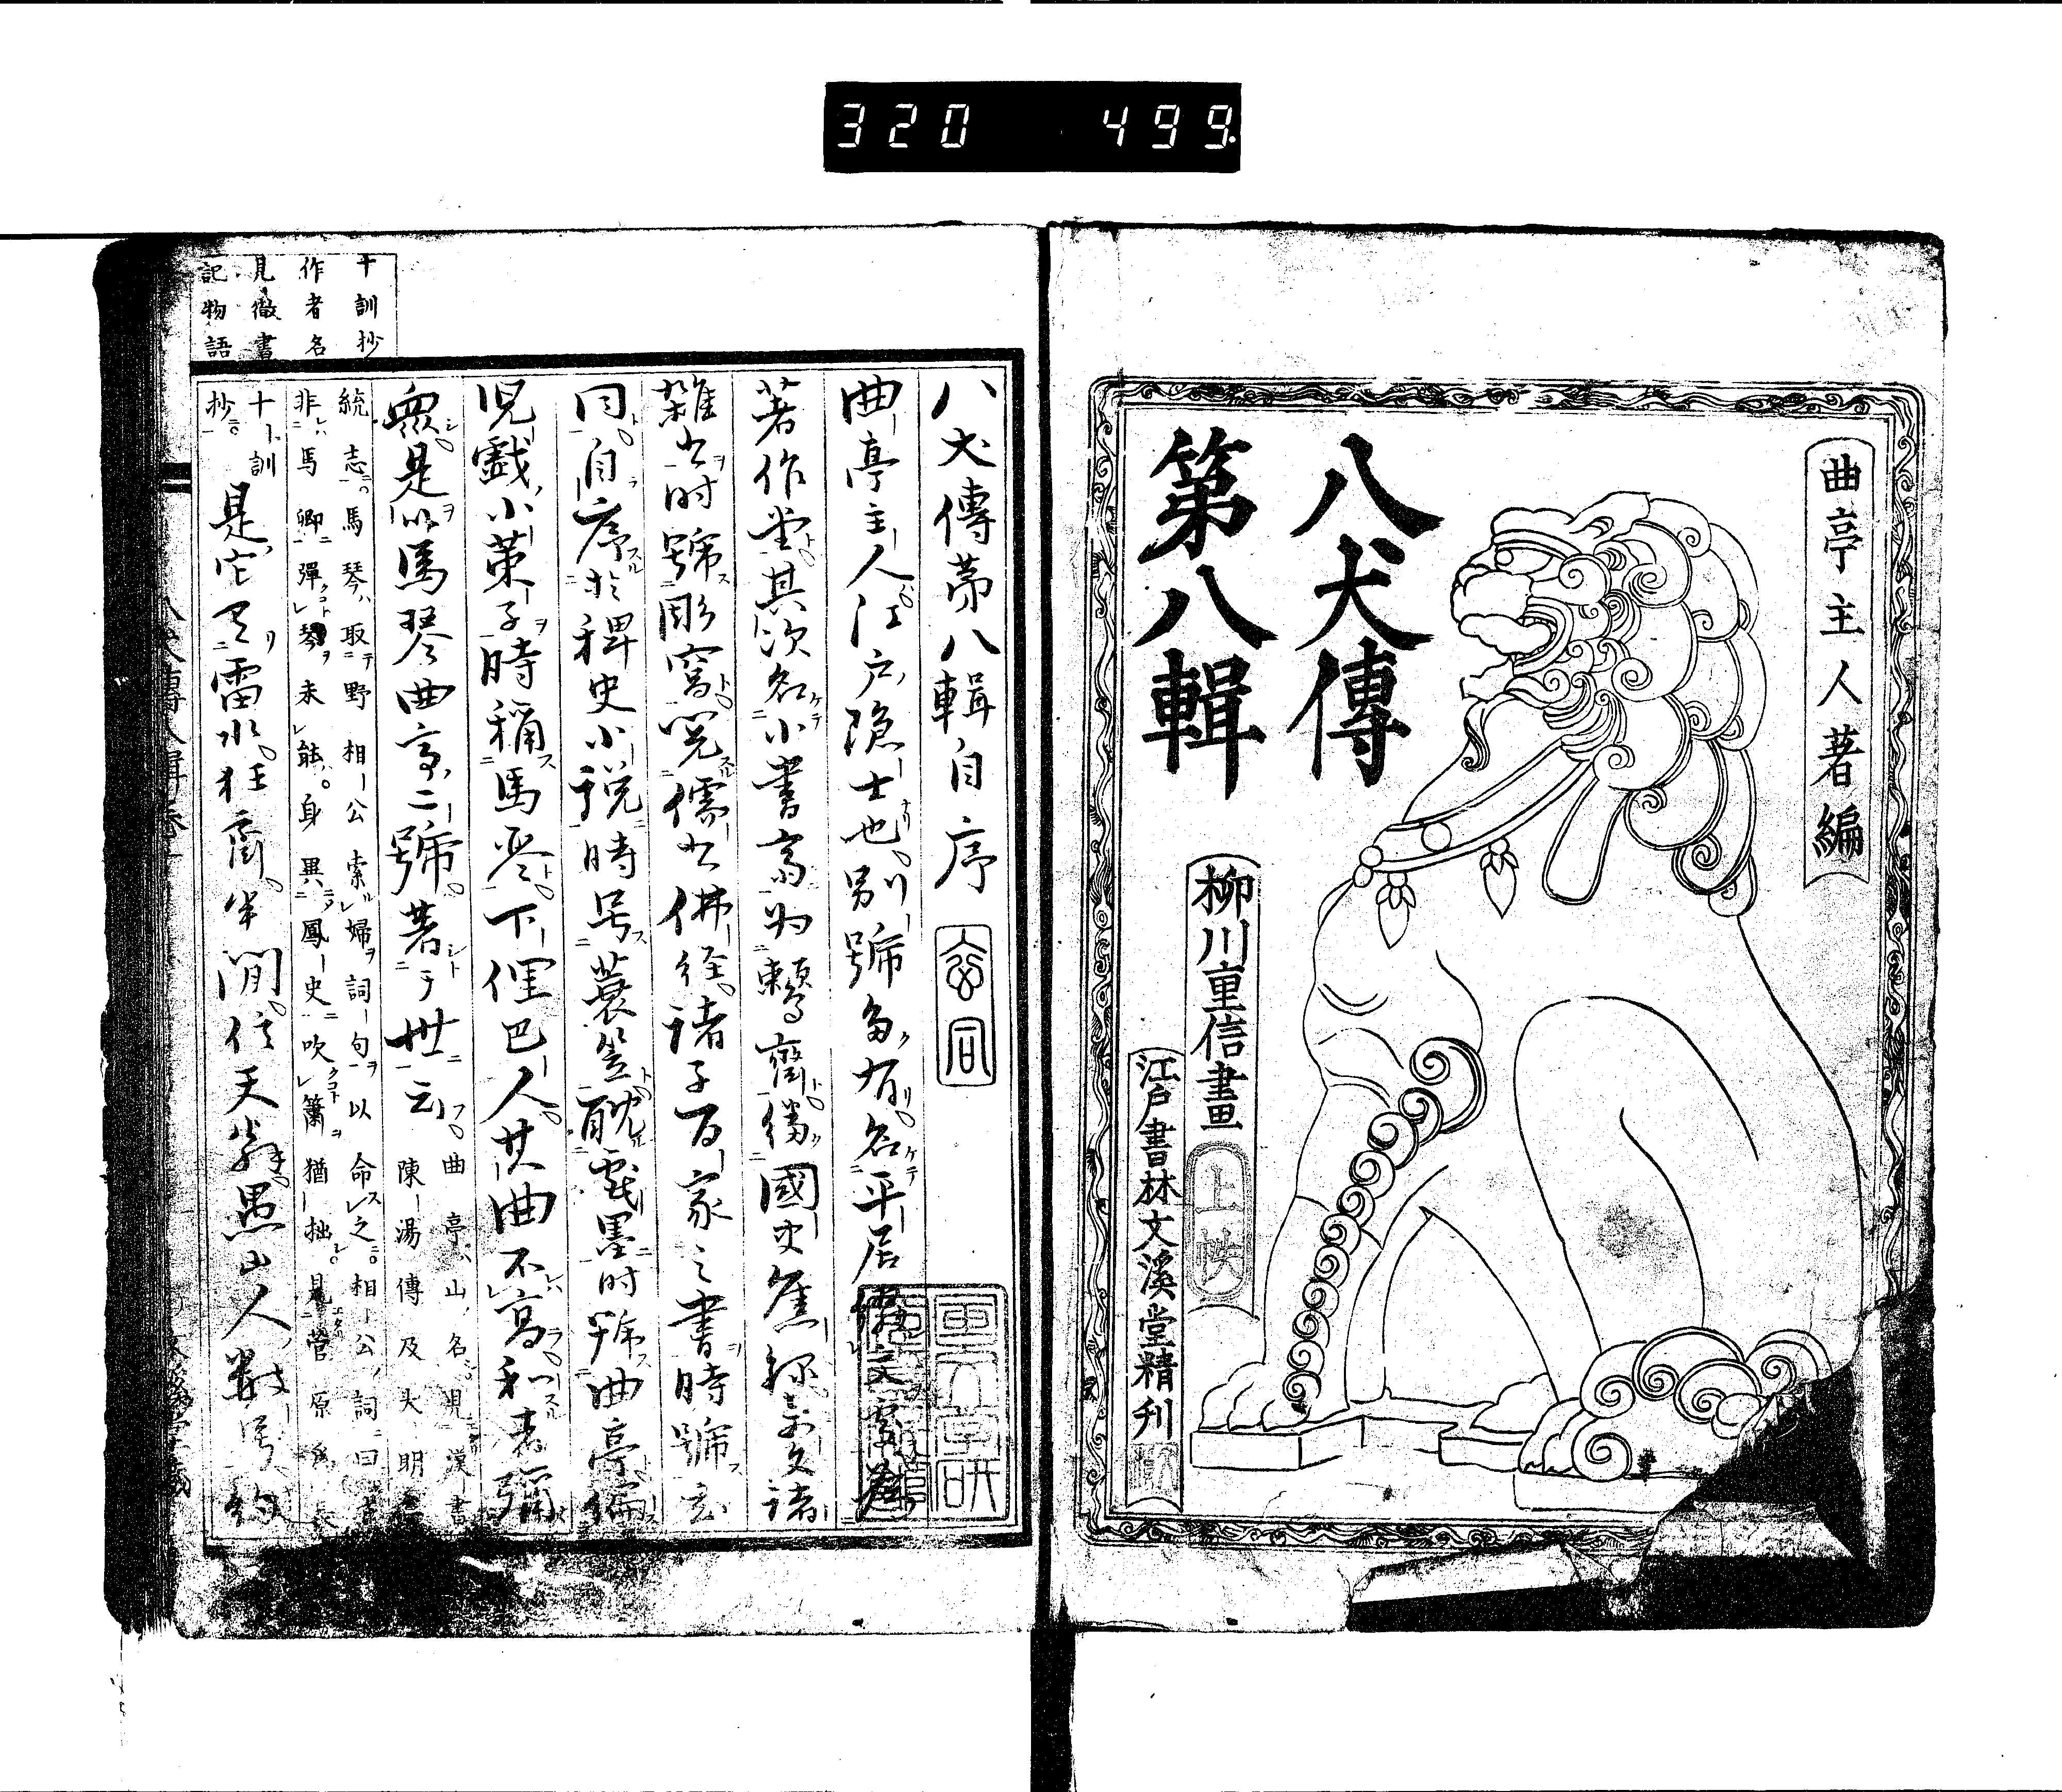 320 499
曲亭主人著編
八犬傳
第八輯
柳川重信畫
上帙
江戸書林文溪堂精刊
八犬傳第八輯自序
曲亭主人江戸隱士也別號多有名平居
著作堂其次名小書齋為
國史
雜書時號彫窩
儒書佛經諸子百家之書時號玄
同自序於稗史小説時号蓑笠
戲墨時號曲亭
兒戲小策子時稱馬琴下俚巴人其曲不高和者彌
衆是以馬琴曲亭二號著于世云
曲亭山名見漢書
陳湯傳及大明
統志馬琴取野相公索婦詞句以命之相公詞曰
非馬卿彈琴未能身異鳳史吹簫猶拙見菅原為長
十訓
抄
是它又雷水狂齋半閒信天翁愚山人數号
十訓抄
作者名
見徹書
記物語